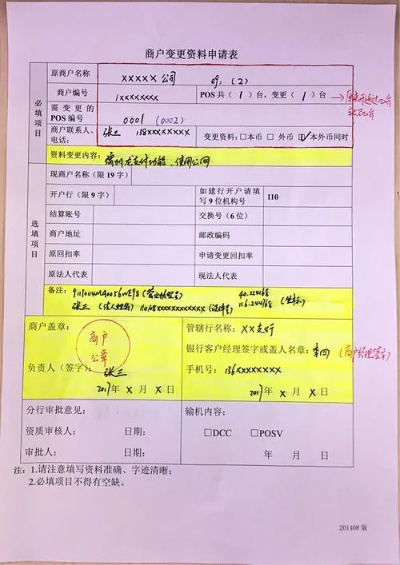 商户变更资料申请表
必填项目
原商户名称 XXXXX 公司 或 (2)
商户编号 1xxxxxxxx POS共（1）台，变更（1）台
需变更的POS编号 0001 (0002)
商户联系人、电话： 张三 138xxxxxxxx 变更资料：□本币 □外币 □本外币同时
资料变更内容：
选填项目
现商户名称（限19字）
开户行（限9字） 如建行开户请填写9位机构号 110
结算账号 交换号（6位）
商户地址 邮政编码
原回扣率 申请变更回扣率
原法人代表 现法人代表
备注：
张三
商户盖章： 管辖行名称：XX支行
商户公章
银行客户经理签字或盖人名章：李四
负责人（签字）：张三 手机号：136xxxxxxxx
2017年 X 月 X 日 2017年 X 月 X 日
分行审批意见： 输机内容：
资质审核人： 日期： □DCC □POSV
审批人： 日期： 年 月 日
注：1.请注意填写资料准确、字迹清晰；
2.必填项目不得有空缺。
201408 版